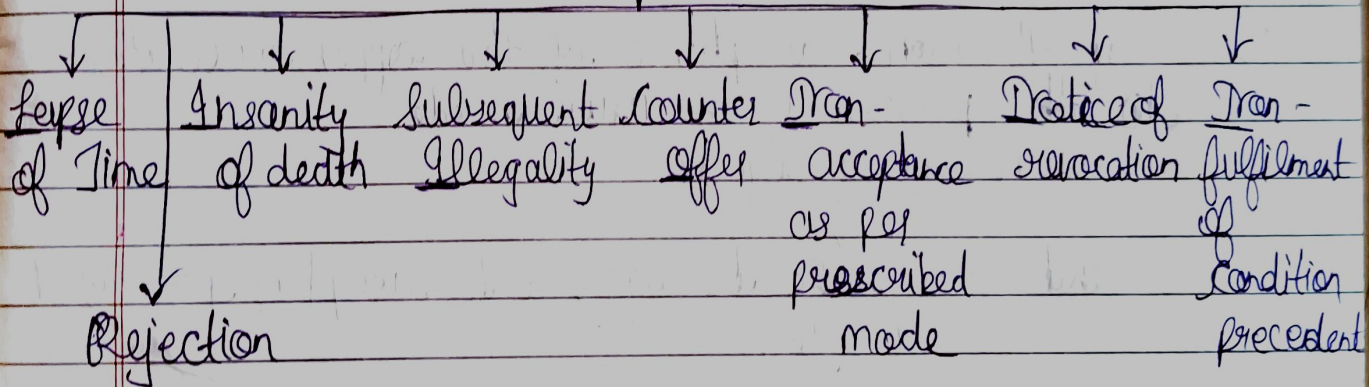 Lapse
of Time
Rejection
Insanity
of death
Subsequent
Illegality
Counter
offer
Non-
acceptance
as per
prescribed
mode
Notice of
revocation
Non-
fulfilment
of
Condition
precedent